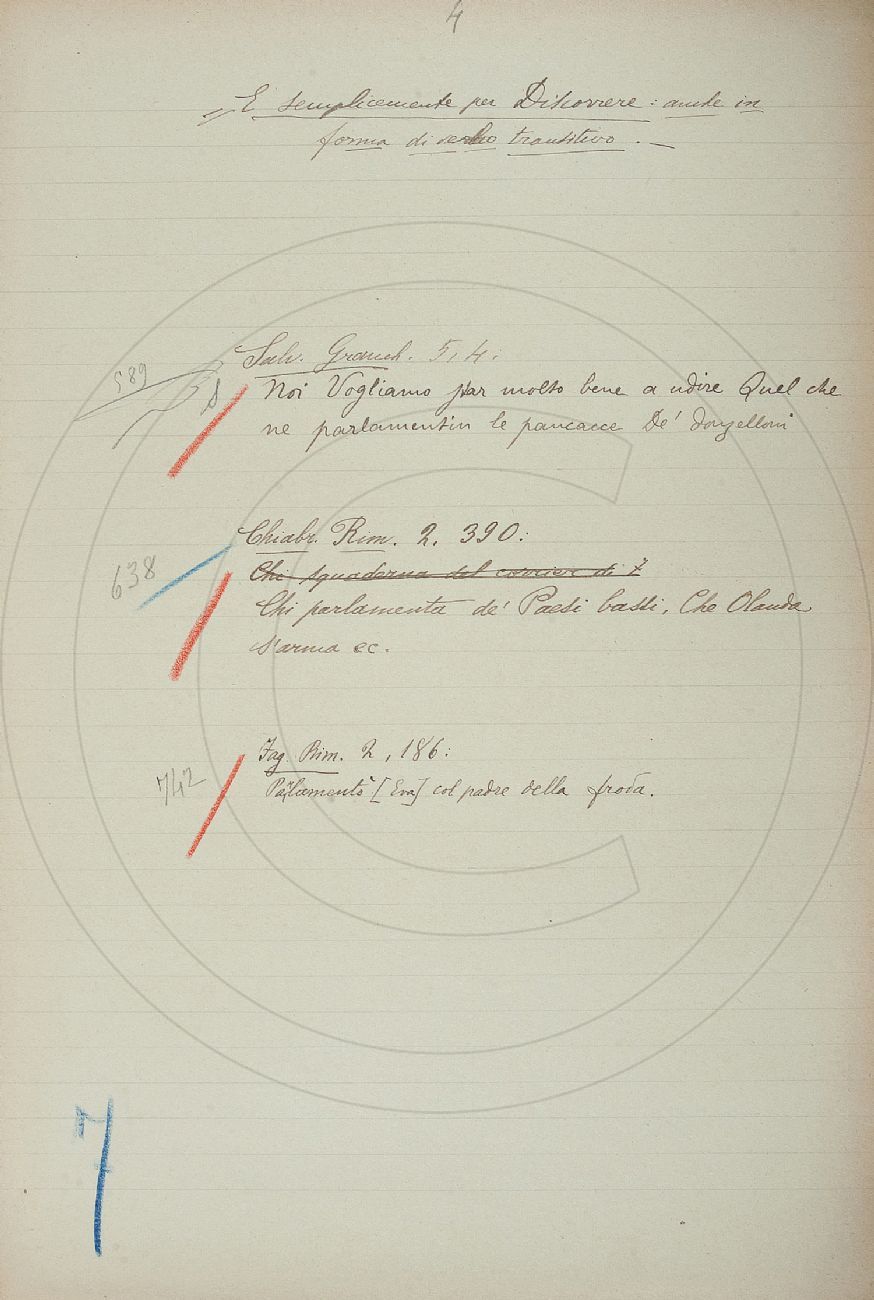 4
E semplicemente per Discorrere: anche in
forma di verbo transitivo. —
Salv. Granch. 5, 4:
589
S Noi Vogliamo par molto bene a udire Quel che
ne parlamentin le pancacce De' donzelloni
Chiabr. Rim. 2. 390:
638
Chi squaderna del corrier di
Chi parlamenta de' Paesi bassi, Che Olanda
s'arma ec.
Fag. Rim. 2, 186:
742
Parlamentò [Eva] col padre della froda.
7